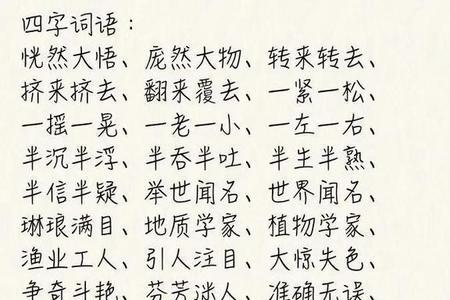 四字词语：
恍然大悟、庞然大物、转来转去、
挤来挤去、翻来覆去、一紧一松、
一摇一晃、一老一小、一左一右、
半沉半浮、半吞半吐、半生半熟、
半信半疑、举世闻名、世界闻名、
琳琅满目、地质学家、植物学家、
渔业工人、引人注目、大惊失色、
争奇斗艳、芬芳迷人、准确无误、